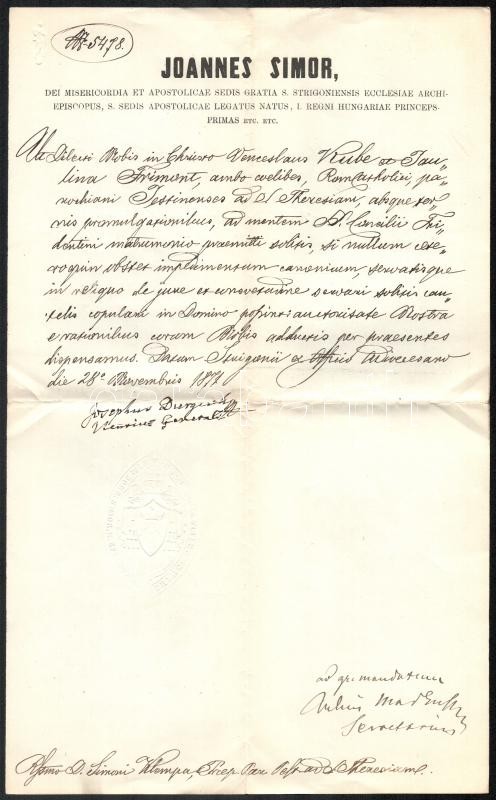 № 5498.
JOANNES SIMOR,
DEI MISERICORDIA ET APOSTOLICAE SEDIS GRATIA S. STRIGONIENSIS ECCLESIAE ARCHI-
EPISCOPUS, S. SEDIS APOSTOLICAE LEGATUS NATUS, I. REGNI HUNGARIAE PRINCEPS-
PRIMAS ETC. ETC.
Ut Dilecti Nobis in Christo Venceslaus Kube et Pau„
lina Frimont, ambo coelibes, Rom. Catholici, pa„
rochiani Pestinenses ad S. Theresiam, absque ter„
nis promulgationibus, ad mentem S. Concilii Tri„
dentini matrimonio praemitti solitis, si nullum
obstet impedimentum canonicum, servatisque
in reliquo de jure et consvetudine servari solitis cau„
telis copulari in Domino possint: auctoritate Nostra
e rationibus coram Nobis adductis per praesentes
dispensamus. Datum Strigonii ex Officio
die 28a Novembris 1871
Josephus
Vicarius Generalis
ad mandatum
Julius
Secretarius
D. Simoni Klempa, Pest ad S. Theresiam.